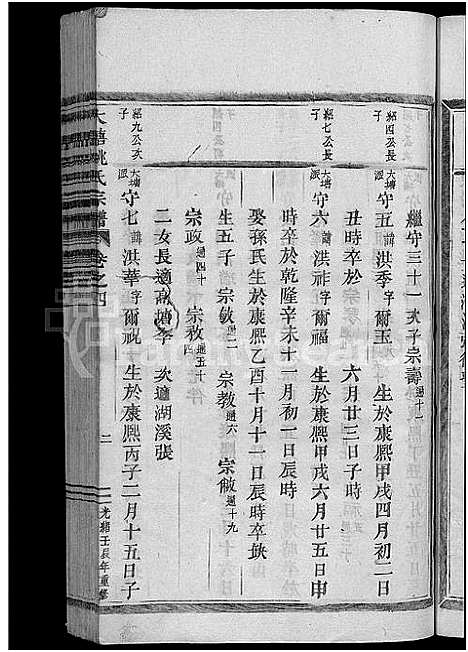 繼守三十一次子宗壽通十一
紹四公長子
大塘派守五諱洪季字爾玉 生於康熙甲戌四月初二日
丑時卒於 六月廿三日子時
紹七公長子
大塘派守六諱洪祚字爾福 生於康熙甲戌六月廿五日申
時卒於乾隆辛未十一月初一日辰時
娶孫氏生於康熙乙酉十月十一日辰時卒缺
生五子 宗敏通二 宗教通六 宗敝通十九
宗政通四十 宗敄通五十四
二女長適高塘李 次適湖溪張
紹九公次子
大塘派守七諱洪華字爾祝 生於康熙丙子二月十五日子
姚氏宗譜 卷之四 二 光緒壬辰年重修